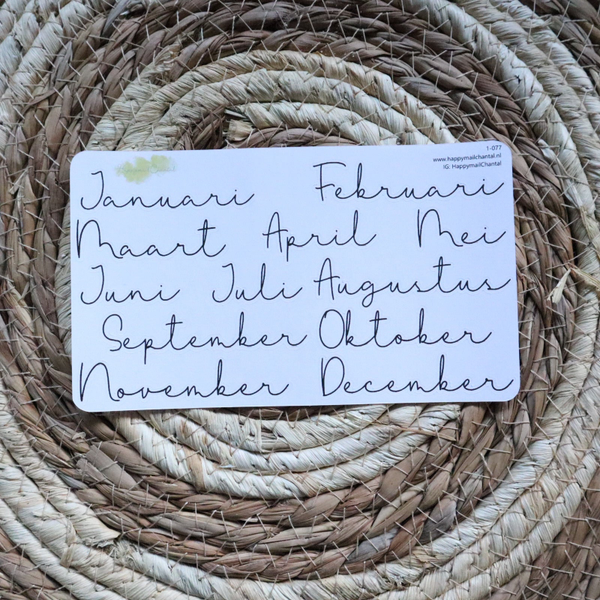 1-077
www.happymailchantal.nl
IG: HappymailChantal
Januari Februari
Maart April Mei
Juni Juli Augustus
September Oktober
November December